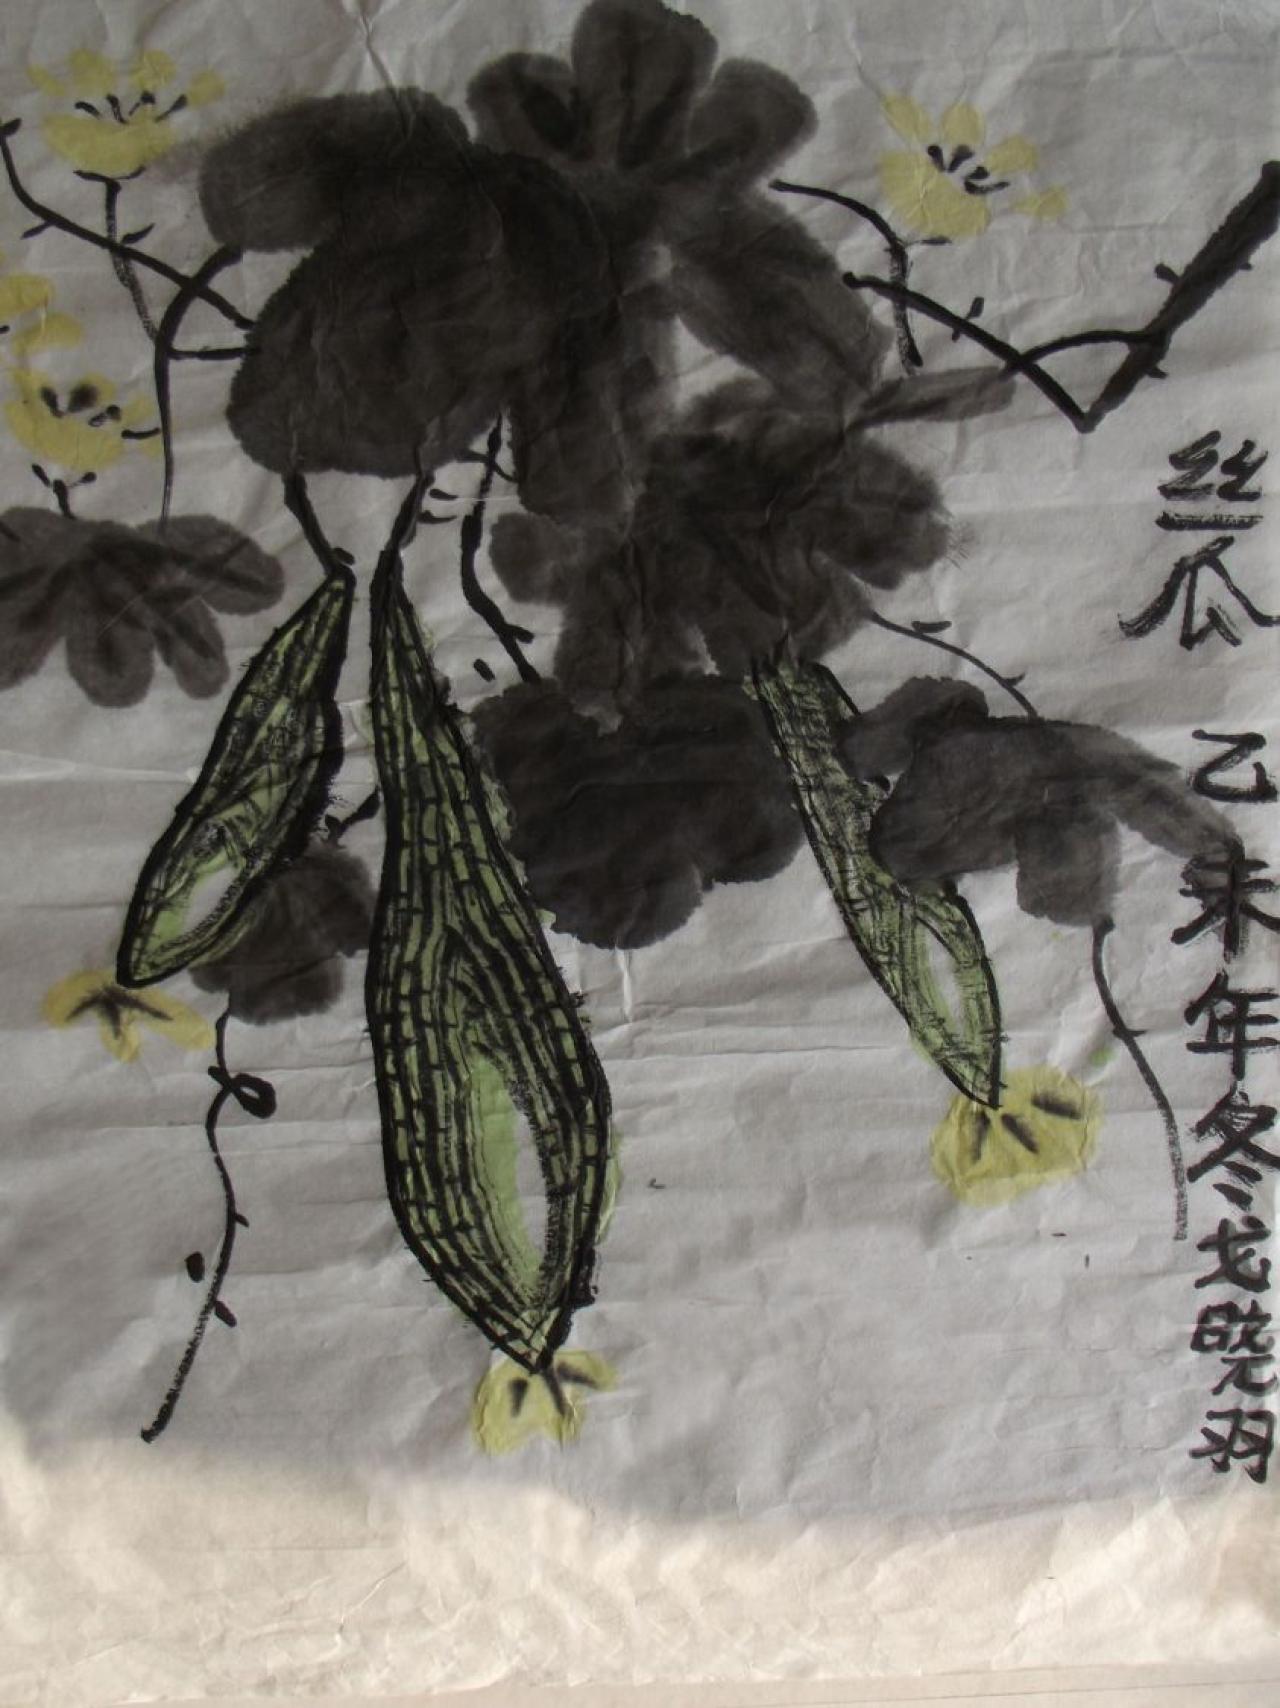 丝瓜 乙未年冬戈晓羽